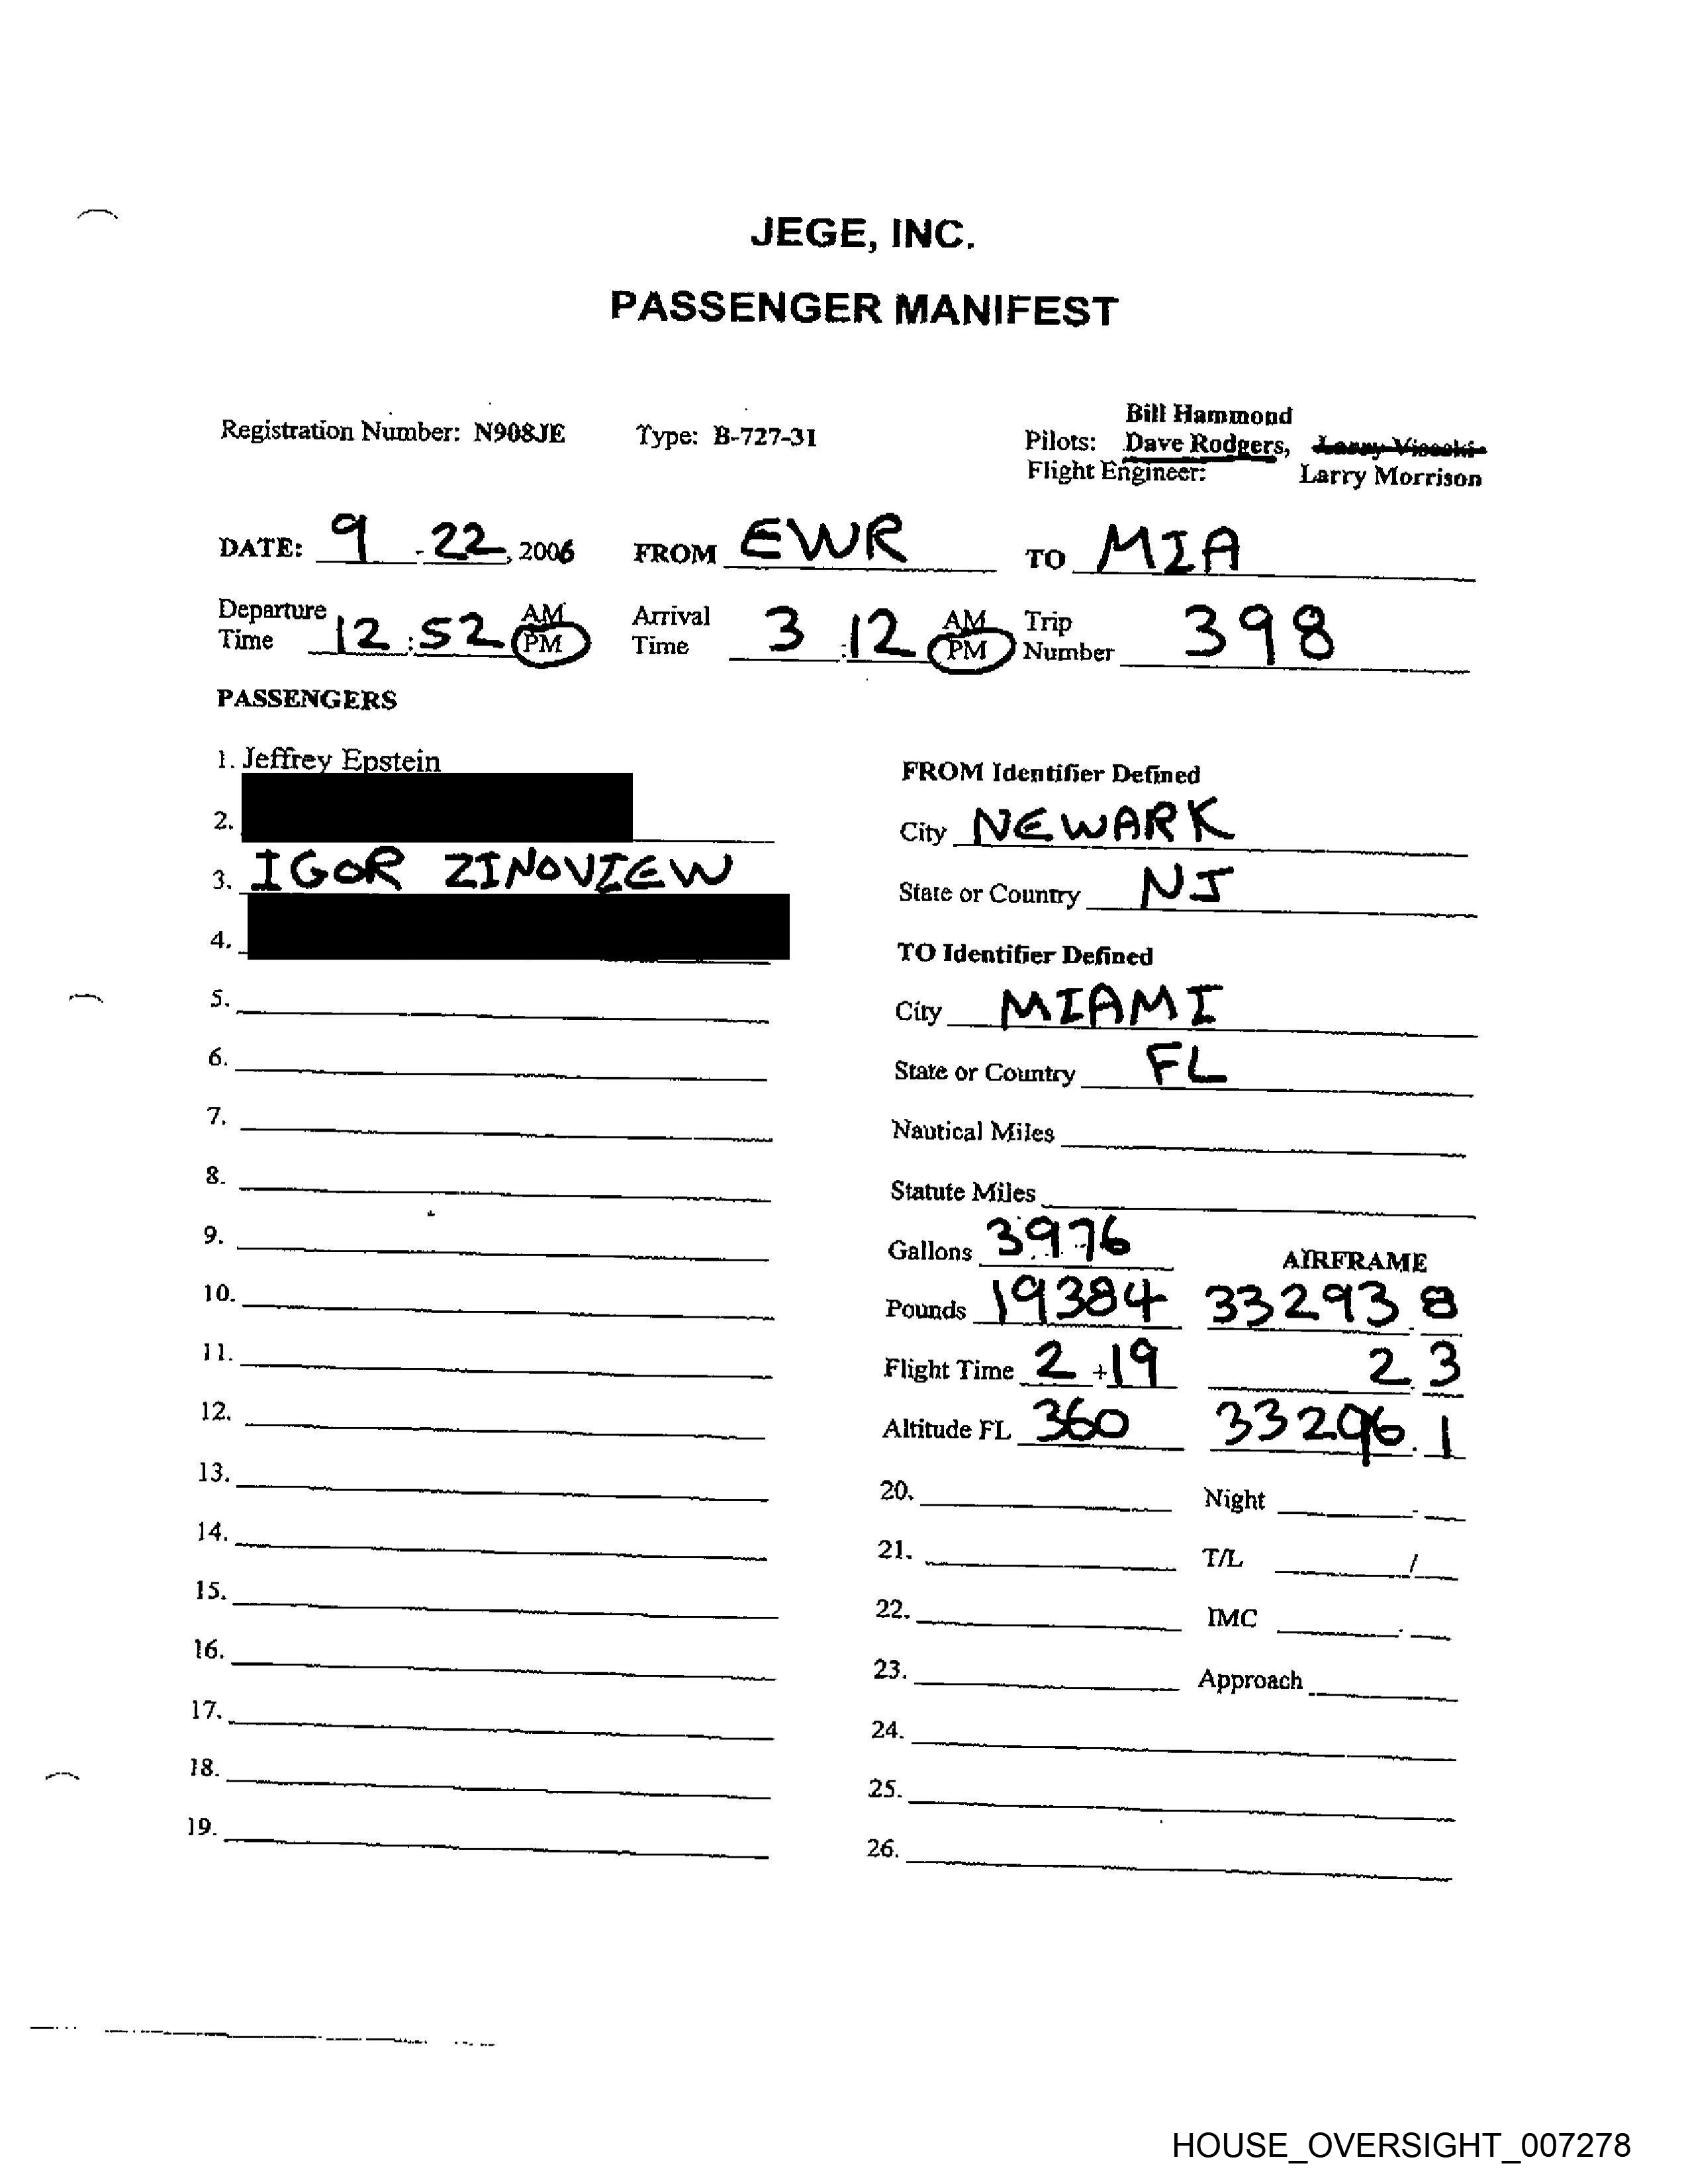 JEGE, INC.
PASSENGER MANIFEST
Bill Hammond
Registration Number: N908JE Type: B-727-31 Pilots: Dave Rodgers,
Flight Engineer: Larry Morrison
DATE: 9 - 22, 2006 FROM EWR TO MIA
Departure Time 12:52 AM PM Arrival Time 3:12 AM PM Trip Number 398
PASSENGERS
1. Jeffrey Epstein
2.
3. IGOR ZINOVIEW
4.
5.
6.
7.
8.
9.
10.
11.
12.
13.
14.
15.
16.
17.
18.
19.
FROM Identifier Defined
City NEWARK
State or Country NJ
TO Identifier Defined
City MIAMI
State or Country FL
Nautical Miles
Statute Miles
Gallons 3976 AIRFRAME
Pounds 19384 33293.8
Flight Time 2+19 2.3
Altitude FL 360 33296.1
20. Night
21. T/L /
22. IMC
23. Approach
24.
25.
26.
HOUSE_OVERSIGHT_007278